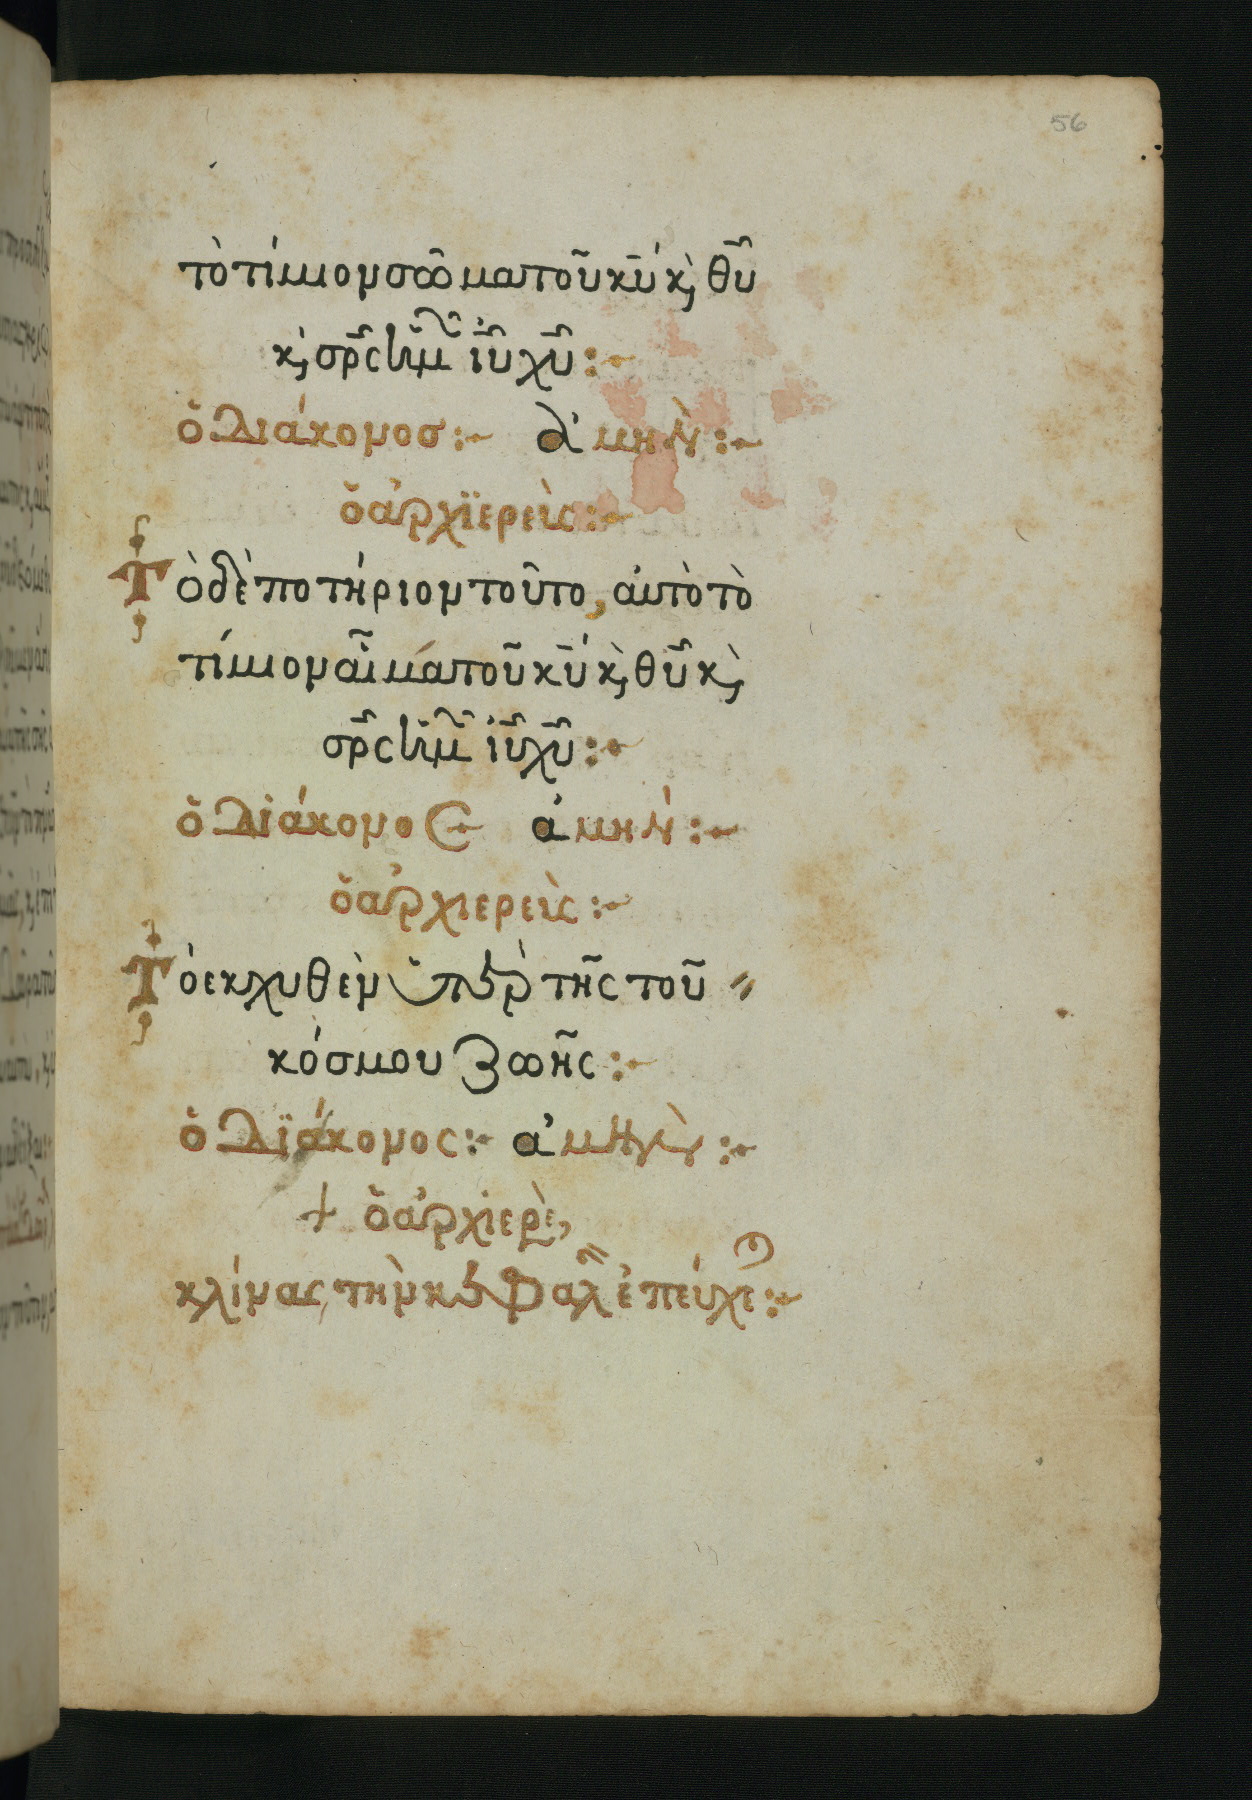 56
τὸ τίμιον σῶμα τοῦ κυ κ, θυ
κ, σρς ἡμ ιυ χυ :~
ὁ διάκονοσ :~ ἀμὴν :~
ὁ ἀρχϊερεὺς :~
Τὸ δὲ ποτήριον τοῦτο, αὐτὸ τὸ
τίμιον αἷμα τοῦ κυ κ, θυ κ,
σρς ἡμ ιυ χυ :~
ὁ διάκονος ἀμὴν :~
ὁ ἀρχιερεὺς :~
Τὸ εκχυθὲν ὑπὲρ τῆς τοῦ
κόσμου ζωῆς :~
ὁ δϊάκονος :~ ἀμὴν :~
+ ὁ ἀρχιερὲ,
κλίνας τὴν κεφαλ ἐπεύχε :~